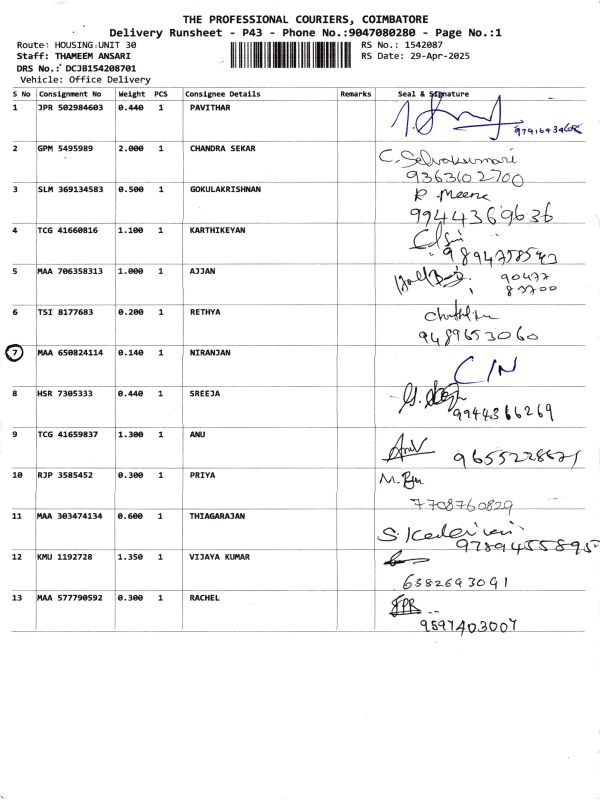 THE PROFESSIONAL COURIERS, COIMBATORE
Delivery Runsheet - P43 - Phone No.:9047080280 - Page No.:1
Route: HOUSING UNIT 30 RS No.: 1542087
Staff: THAMEEM ANSARI RS Date: 29-Apr-2025
DRS No.: DCJB154208701
Vehicle: Office Delivery
S No Consignment No Weight PCS Consignee Details Remarks Seal & Signature
1 JPR 502984603 0.440 1 PAVITHAR
2 GPM 5495989 2.000 1 CHANDRA SEKAR C. Selvakumari
9363102700
3 SLM 369134583 0.500 1 GOKULAKRISHNAN R Meena
9944369636
4 TCG 41660816 1.100 1 KARTHIKEYAN
9894758543
5 MAA 706358313 1.000 1 AJJAN 90477
83700
6 TSI 8177683 0.200 1 RETHYA
9489653060
7 MAA 650824114 0.140 1 NIRANJAN C/N
8 HSR 7305333 0.440 1 SREEJA
9944366269
9 TCG 41659837 1.300 1 ANU Anu
10 RJP 3585452 0.300 1 PRIYA
7708760829
11 MAA 303474134 0.600 1 THIAGARAJAN
9789455895
12 KMU 1192728 1.350 1 VIJAYA KUMAR
6382693091
13 MAA 577790592 0.300 1 RACHEL
9597403007